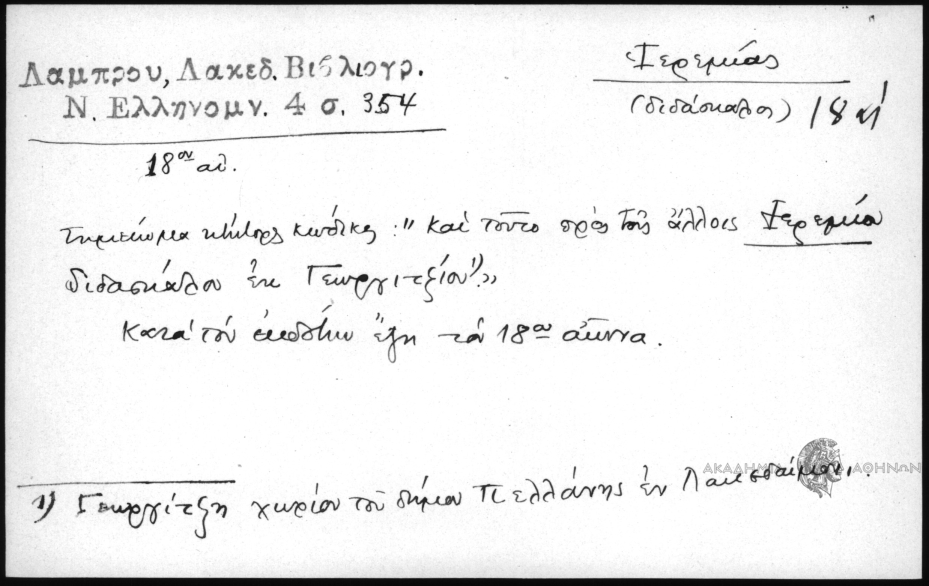 Λαμπρου, Λακεδ. Βιβλιογρ.
Ν. Ελληνομν. 4 σ. 354
Ἱερεμίας
(διδάσκαλος) 18 αἰ
18ου αἰ.
Σημείωμα κτήτορος κώδικος : "καὶ τοῦτο πρὸς τοῖς ἄλλοις Ἱερεμίου
διδασκάλου ἐκ Γεωργιτζίου¹⁾.»
Κατὰ τὸν ἐκδότην ἔζη τὸν 18ον αἰῶνα.
ΑΚΑΔΗΜΙΑ ΑΘΗΝΩΝ
1) Γεωργίτζη χωρίον τοῦ δήμου Πελλάνης ἐν Λακεδαίμονι.